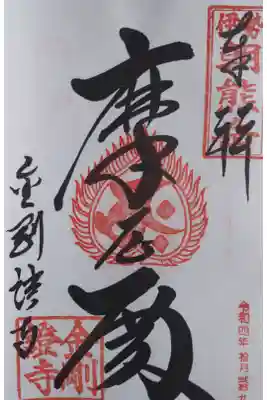 伊勢
朝熊岳
奉拝
摩尼殿
金剛證寺
金剛
證寺
令和四年 拾月